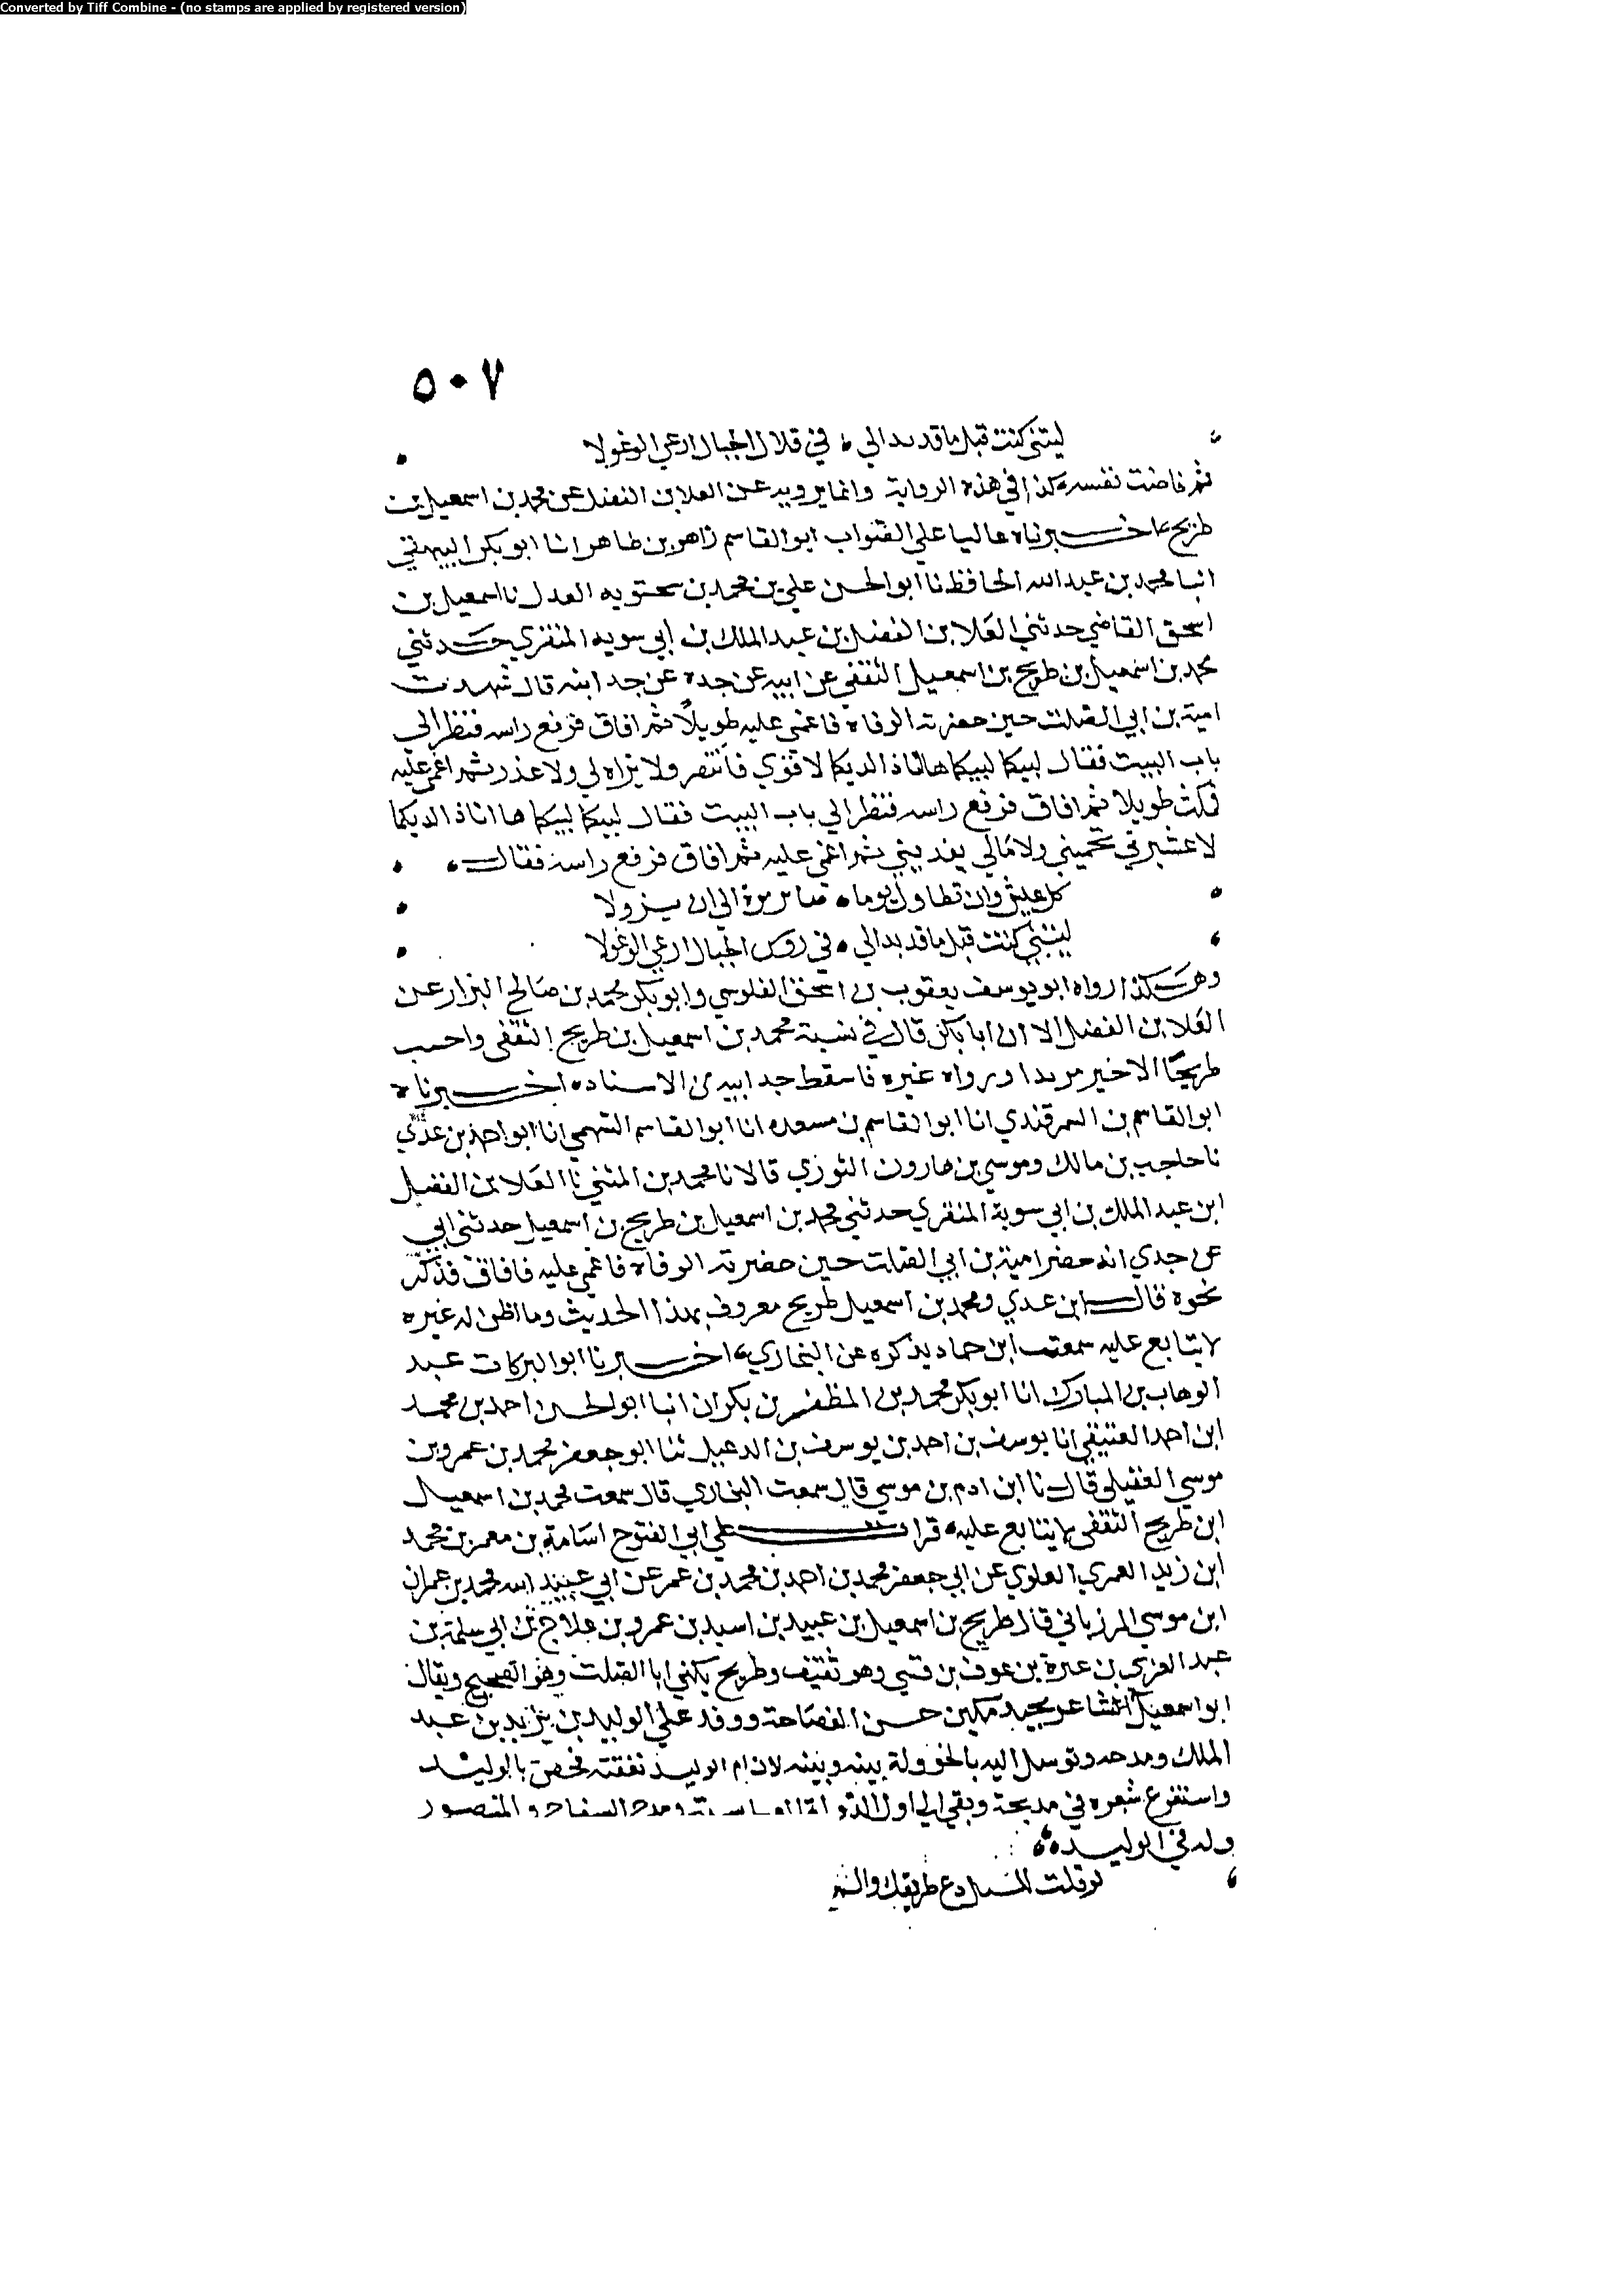 Converted by Tiff Combine - (no stamps are applied by registered version)
٥٠٧
ليتني كنت قبل ما قد بدالي في قلال الجبال ارعي الوعولا
ثم فاضت نفسه كذا في هذه الرواية وانما يرويه عن العلا بن الفضل عن محمد بن اسمعيل بن
طريح اخبرناه عاليا علي الصواب ابو القاسم زاهر بن طاهر انا ابو بكر البيهقي
انبا محمد بن عبد الله الحافظ نا ابو الحسن علي بن محمد بن سحتويه العدل نا اسمعيل بن
اسحق القاضي حدثني العلا بن الفضل بن عبد الملك بن ابي سويه المنقري حدثني
محمد بن اسمعيل بن طريح بن اسمعيل الثقفي عن ابيه عن جده عن جد ابيه قال شهدت
امية بن ابي الصلت حين حضرته الوفاة فاغمي عليه طويلا ثم افاق فرفع راسه فنظر الي
باب البيت فقال لبيكما لبيكما ها انا ذا لديكما لا قوي فانتصر ولا براه لي ولا عذر ثم اغمي عليه
فمكث طويلا ثم افاق فرفع راسه فنظر الي باب البيت فقال لبيكما لبيكما ها انا ذا لديكما
لا عشيرتي تحميني ولا مالي يفديني ثم اغمي عليه ثم افاق فرفع راسه فقال
كل عيش وان تطاول يوما صاير مرة الي ان يزولا
ليتني كنت قبل ما قد بدالي في روس الجبال ارعي الوعولا
وهكذا رواه ابو يوسف يعقوب بن اسحق القلوسي وابو بكر محمد بن صالح البزار عن
العلا بن الفضل الا ان ابا بكر قال في نسبة محمد بن اسمعيل بن طريح الثقفي واحسب
طريحا الاخير مزيدا ورواه غيره فاسقط جد ابيه من الاسناد اخبرناه
ابو القاسم بن السمرقندي انا ابو القاسم بن مسعدة انا ابو القاسم السهمي انا ابو احمد بن عدي
نا حاجب بن مالك وموسي بن هارون التوزي قالا نا محمد بن المثني نا العلا بن الفضل
ابن عبد الملك بن ابي سوية المنقري حدثني محمد بن اسمعيل بن طريح بن اسمعيل حدثني ابي
عن جدي انه حضر امية بن ابي الصلت حين حضرته الوفاة فاغمي عليه فافاق فذكر
نحوه قال ابن عدي ومحمد بن اسمعيل طريح معروف بهذا الحديث وما اظن له غيره
لا يتابع عليه سمعت ابن حماد يذكره عن البخاري اخبرنا ابو البركات عبد
الوهاب بن المبارك انا ابو بكر محمد بن المظفر بن بكران انبا ابو الحسن احمد بن محمد
ابن احمد العتيقي انا يوسف بن احمد بن يوسف بن الدخيل ثنا ابو جعفر محمد بن عمرو بن
موسي العقيلي قال نا ابن ادم بن موسي قال سمعت البخاري قال سمعت محمد بن اسمعيل
ابن طريح الثقفي لا يتابع عليه قرات علي ابي الفتوح اسامة بن معمر بن محمد
ابن زيد العمري العلوي عن ابي جعفر محمد بن احمد بن محمد بن عمر عن ابي عبيد الله محمد بن عمران
ابن موسي المرزباني قال طريح بن اسمعيل بن عبيد بن اسيد بن عمرو بن علاج بن ابي سلمة بن
عبد العزي بن عنزة بن عوف بن قسي وهو ثقيف وطريح يكني ابا الصلت وهو الصحيح ويقال
ابو اسمعيل شاعر مجيد مكين حسن الفصاحة ووفد علي الوليد بن يزيد بن عبد
الملك ومدحه وتوسل اليه بالخؤولة بينه وبينه لان ام الوليد ثقفية فخص بالوليد
واستفرغ شعره في مديحه وبقي الي اول ومدح السفاح والمنصور
وله في الوليد
لو قلت للسيل دع طريقك